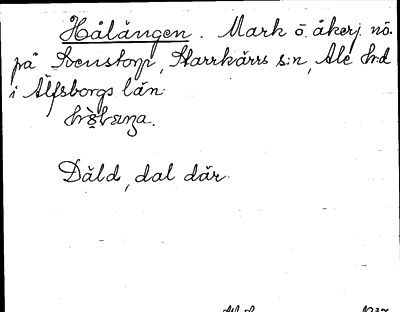 Hålängen. Mark o. åkerj. nö.
på Svenstorp, Starrkärrs s:n, Ale h:d
i Älfsborgs län.
Däld, dal där.